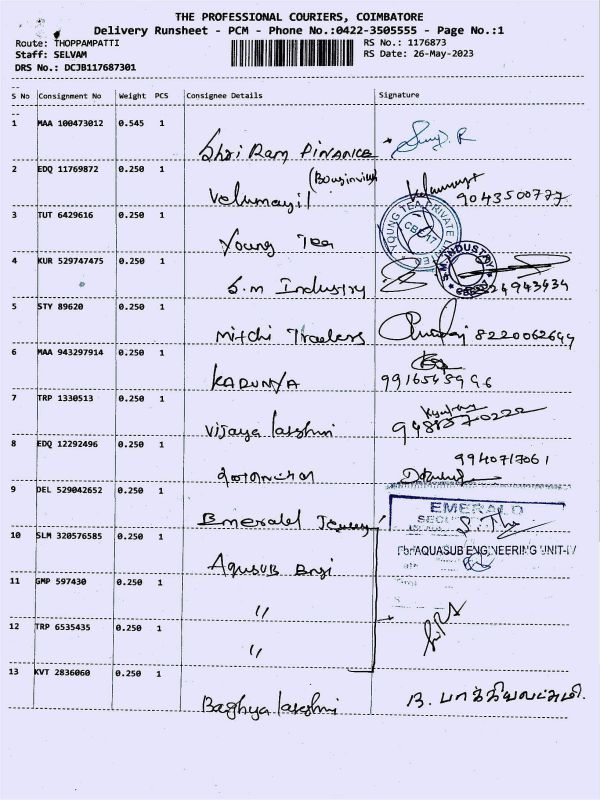 THE PROFESSIONAL COURIERS, COIMBATORE
Delivery Runsheet - PCM - Phone No.:0422-3505555 - Page No.:1
Route: THOPPAMPATTI RS No.: 1176873
Staff: SELVAM RS Date: 26-May-2023
DRS No.: DCJB117687301
S No Consignment No Weight PCS Consignee Details Signature
1 MAA 100473012 0.545 1
Shri Ram FINANCE
2 EDQ 11769872 0.250 1
Velumayil 9043500777
3 TUT 6429616 0.250 1
Young Tea
YOUNG TEA PRIVATE LIMITED
CBE-17
4 KUR 529747475 0.250 1
S.m Industry
S.M.INDUSTRY
5 STY 89620 0.250 1
Mitchi Traders 8220062644
6 MAA 943297914 0.250 1
KARUNYA
7 TRP 1330513 0.250 1
Vijaya lakshmi
8 EDQ 12292496 0.250 1
9940717061
9 DEL 529042652 0.250 1
Emerald
EMERALD
10 SLM 320576585 0.250 1
Aqusub Engi
For AQUASUB ENGINEERING UNIT-IV
11 GMP 597430 0.250 1
"
12 TRP 6535435 0.250 1
"
13 KVT 2836060 0.250 1
Baghya lakshmi B. பாக்கியலட்சுமி